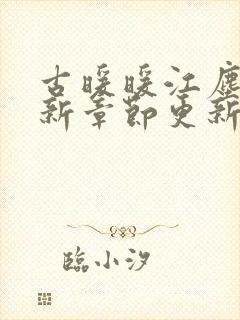 古暖暖江塵
新章節更新
臨小汐